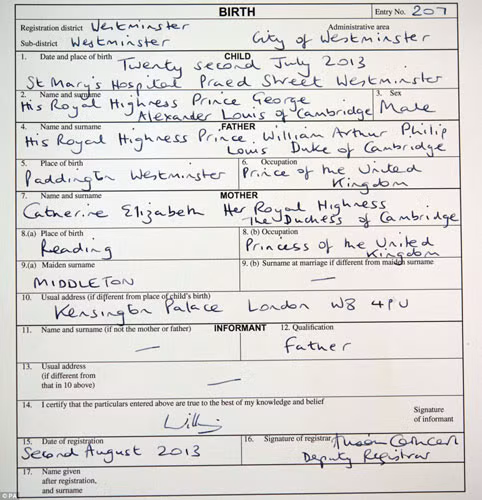 BIRTH Entry No. 207
Registration district Westminster Administrative area
Sub-district Westminster City of Westminster
1. Date and place of birth CHILD
Twenty second July 2013
St Mary's Hospital Praed Street Westminster
2. Name and surname 3. Sex
His Royal Highness Prince George
Alexander Louis of Cambridge Male
4. Name and surname FATHER
His Royal Highness Prince William Arthur Philip
Louis Duke of Cambridge
5. Place of birth 6. Occupation
Paddington Westminster Prince of the United
Kingdom
7. Name and surname MOTHER
Catherine Elizabeth Her Royal Highness
The Duchess of Cambridge
8.(a) Place of birth 8. (b) Occupation
Reading Princess of the United
Kingdom
9.(a) Maiden surname 9. (b) Surname at marriage if different from maiden surname
MIDDLETON —
10. Usual address (if different from place of child's birth)
Kensington Palace London W8 4PU
11. Name and surname (if not the mother or father) INFORMANT 12. Qualification
— Father
13. Usual address
(if different from
that in 10 above) —
14. I certify that the particulars entered above are true to the best of my knowledge and belief
Signature
of informant
15. Date of registration 16. Signature of registrar
Second August 2013 Deputy Registrar
17. Name given
after registration,
and surname
© PA